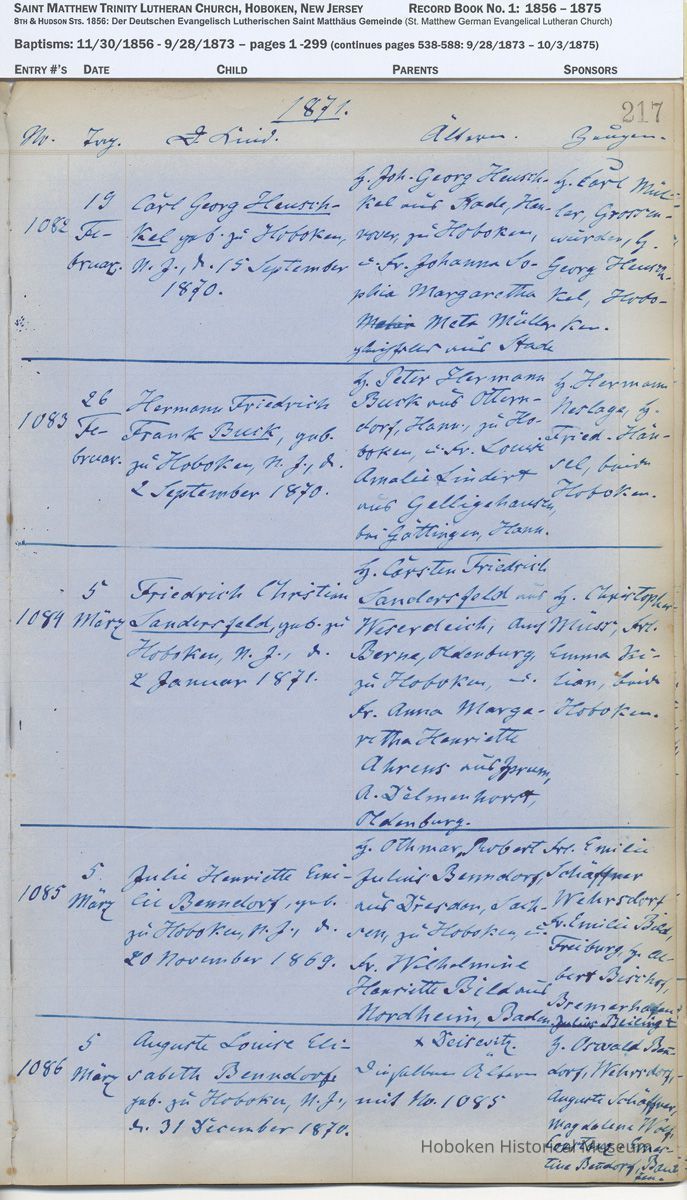 SAINT MATTHEW TRINITY LUTHERAN CHURCH, HOBOKEN, NEW JERSEY RECORD BOOK NO. 1: 1856 – 1875
8TH & HUDSON STS. 1856: Der Deutschen Evangelisch Lutherischen Saint Matthäus Gemeinde (St. Matthew German Evangelical Lutheran Church)
Baptisms: 11/30/1856 - 9/28/1873 – pages 1 -299 (continues pages 538-588: 9/28/1873 – 10/3/1875)
ENTRY #'S DATE CHILD PARENTS SPONSORS
1871. 217
No. Tag. D. Kind. Ältern. Zeugen.
1082
19
Fe-
bruar.
Carl Georg Heusch-
kel geb. zu Hoboken,
N. J., d. 15 September
1870.
H. Joh. Georg Heusch-
kel aus Stade, Han-
nover, zu Hoboken,
u. Fr. Johanna So-
phia Margaretha
Meta Müller
gleichfalls aus Stade
H. Carl Mül-
ler, Grossen-
wörden, H.
Georg Heusch-
kel, Hobo-
ken.
1083
26
Fe-
bruar.
Hermann Friedrich
Frank Buck, geb.
zu Hoboken, N. J., d.
2 September 1870.
H. Peter Hermann
Buck aus Ottern-
dorf, Hann., zu Ho-
boken, u. Fr. Louise
Amalie Lindert
aus Gelliehausen,
bei Göttingen, Hann.
H. Hermann
Neslage, H.
Fried. Hän-
sel, beide
Hoboken.
1084
5
März
Friedrich Christian
Sandersfeld, geb. zu
Hoboken, N. J., d.
2 Januar 1871.
H. Carsten Friedrich
Sandersfeld aus
Weserdeich, Amt
Berne, Oldenburg,
zu Hoboken, u.
Fr. Anna Marga-
retha Henriette
Ahrens aus
A. Delmenhorst,
Oldenburg.
H. Christopher
Müss, Frl.
Emma Ki-
lian, beide
Hoboken.
1085
5
März
Julie Henriette Emi-
lie Benndorf, geb.
zu Hoboken, N. J., d.
20 November 1869.
H. Othmar Robert
Julius Benndorf,
aus Dresden, Sach-
sen, zu Hoboken, u.
Fr. Wilhelmine
Henriette Bild aus
Nordheim, Baden
Frl. Emilie
Schäffner
Wehrsdorf
Fr. Emilie Bild,
Freiburg, H. Al-
bert Bischof,
Bremerhafen
1086
5
März
Auguste Louise Eli-
sabeth Benndorf
geb. zu Hoboken, N. J.,
d. 31 December 1870.
Dieselben Ältern
mit No. 1085
H. Oswald Ben-
dorf, Wehrsdorf,
Auguste Schäffner,
Magdalene
Hoboken Historical Museum